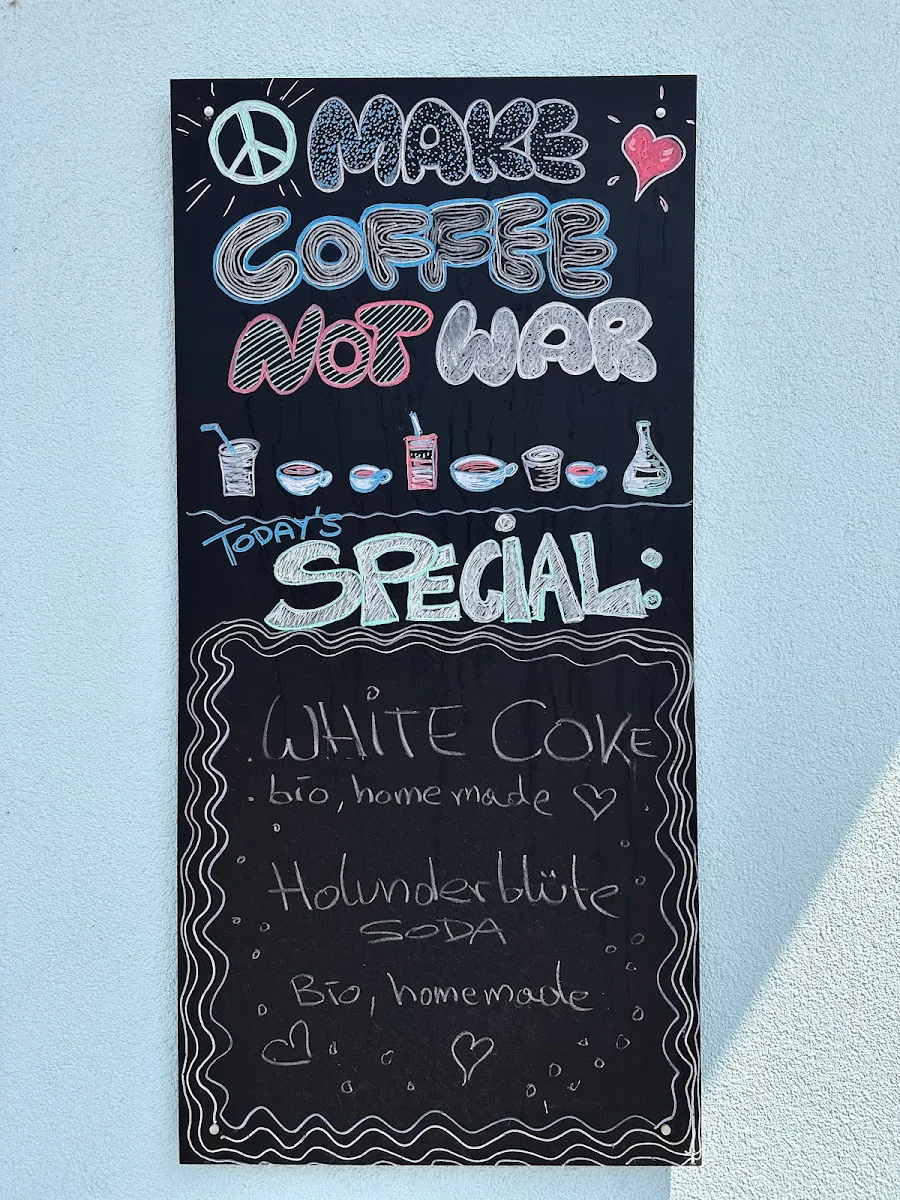 MAKE
COFFEE
NOT WAR
TODAY'S
SPECIAL:
WHITE COKE
bio, homemade
Holunderblüte
SODA
Bio, homemade